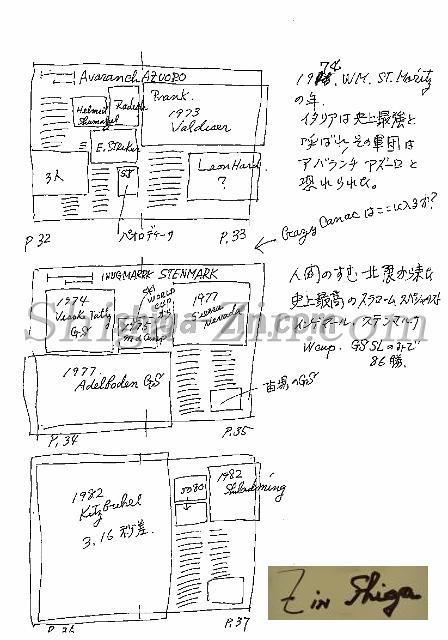 Avaranch AZUORO
Frank.
1973
Valdiser
Helmut
Shumargl
Radichi
E. Striker
3人
ST
Leonhard
?
P.32
パイオロテーク
P.33
1974. WM. ST. Moritz
の年.
イタリアは史上最強と
呼ばれその軍団は
アバランチ アズーロ と
恐れられた。
Crazy Canac はここに入ますか?
INGMARK STENMARK
1974
Vysoke Tatry
GS
SKI
WORLD
CUP
1975
1977
Sierra
Nevada
1977
Adelboden GS
苗場のGS
P.34
P.35
人間のすむ北限から来た
史上最高のスラロームスペシャリスト
インゲマール ステンマルク
Wcup. GS SL のみで
86勝.
1982
Kitzbuhel
3.16 秒差
1980
1982
Shladming
P.36
P.37
Shiga Zin.com
Z in Shiga